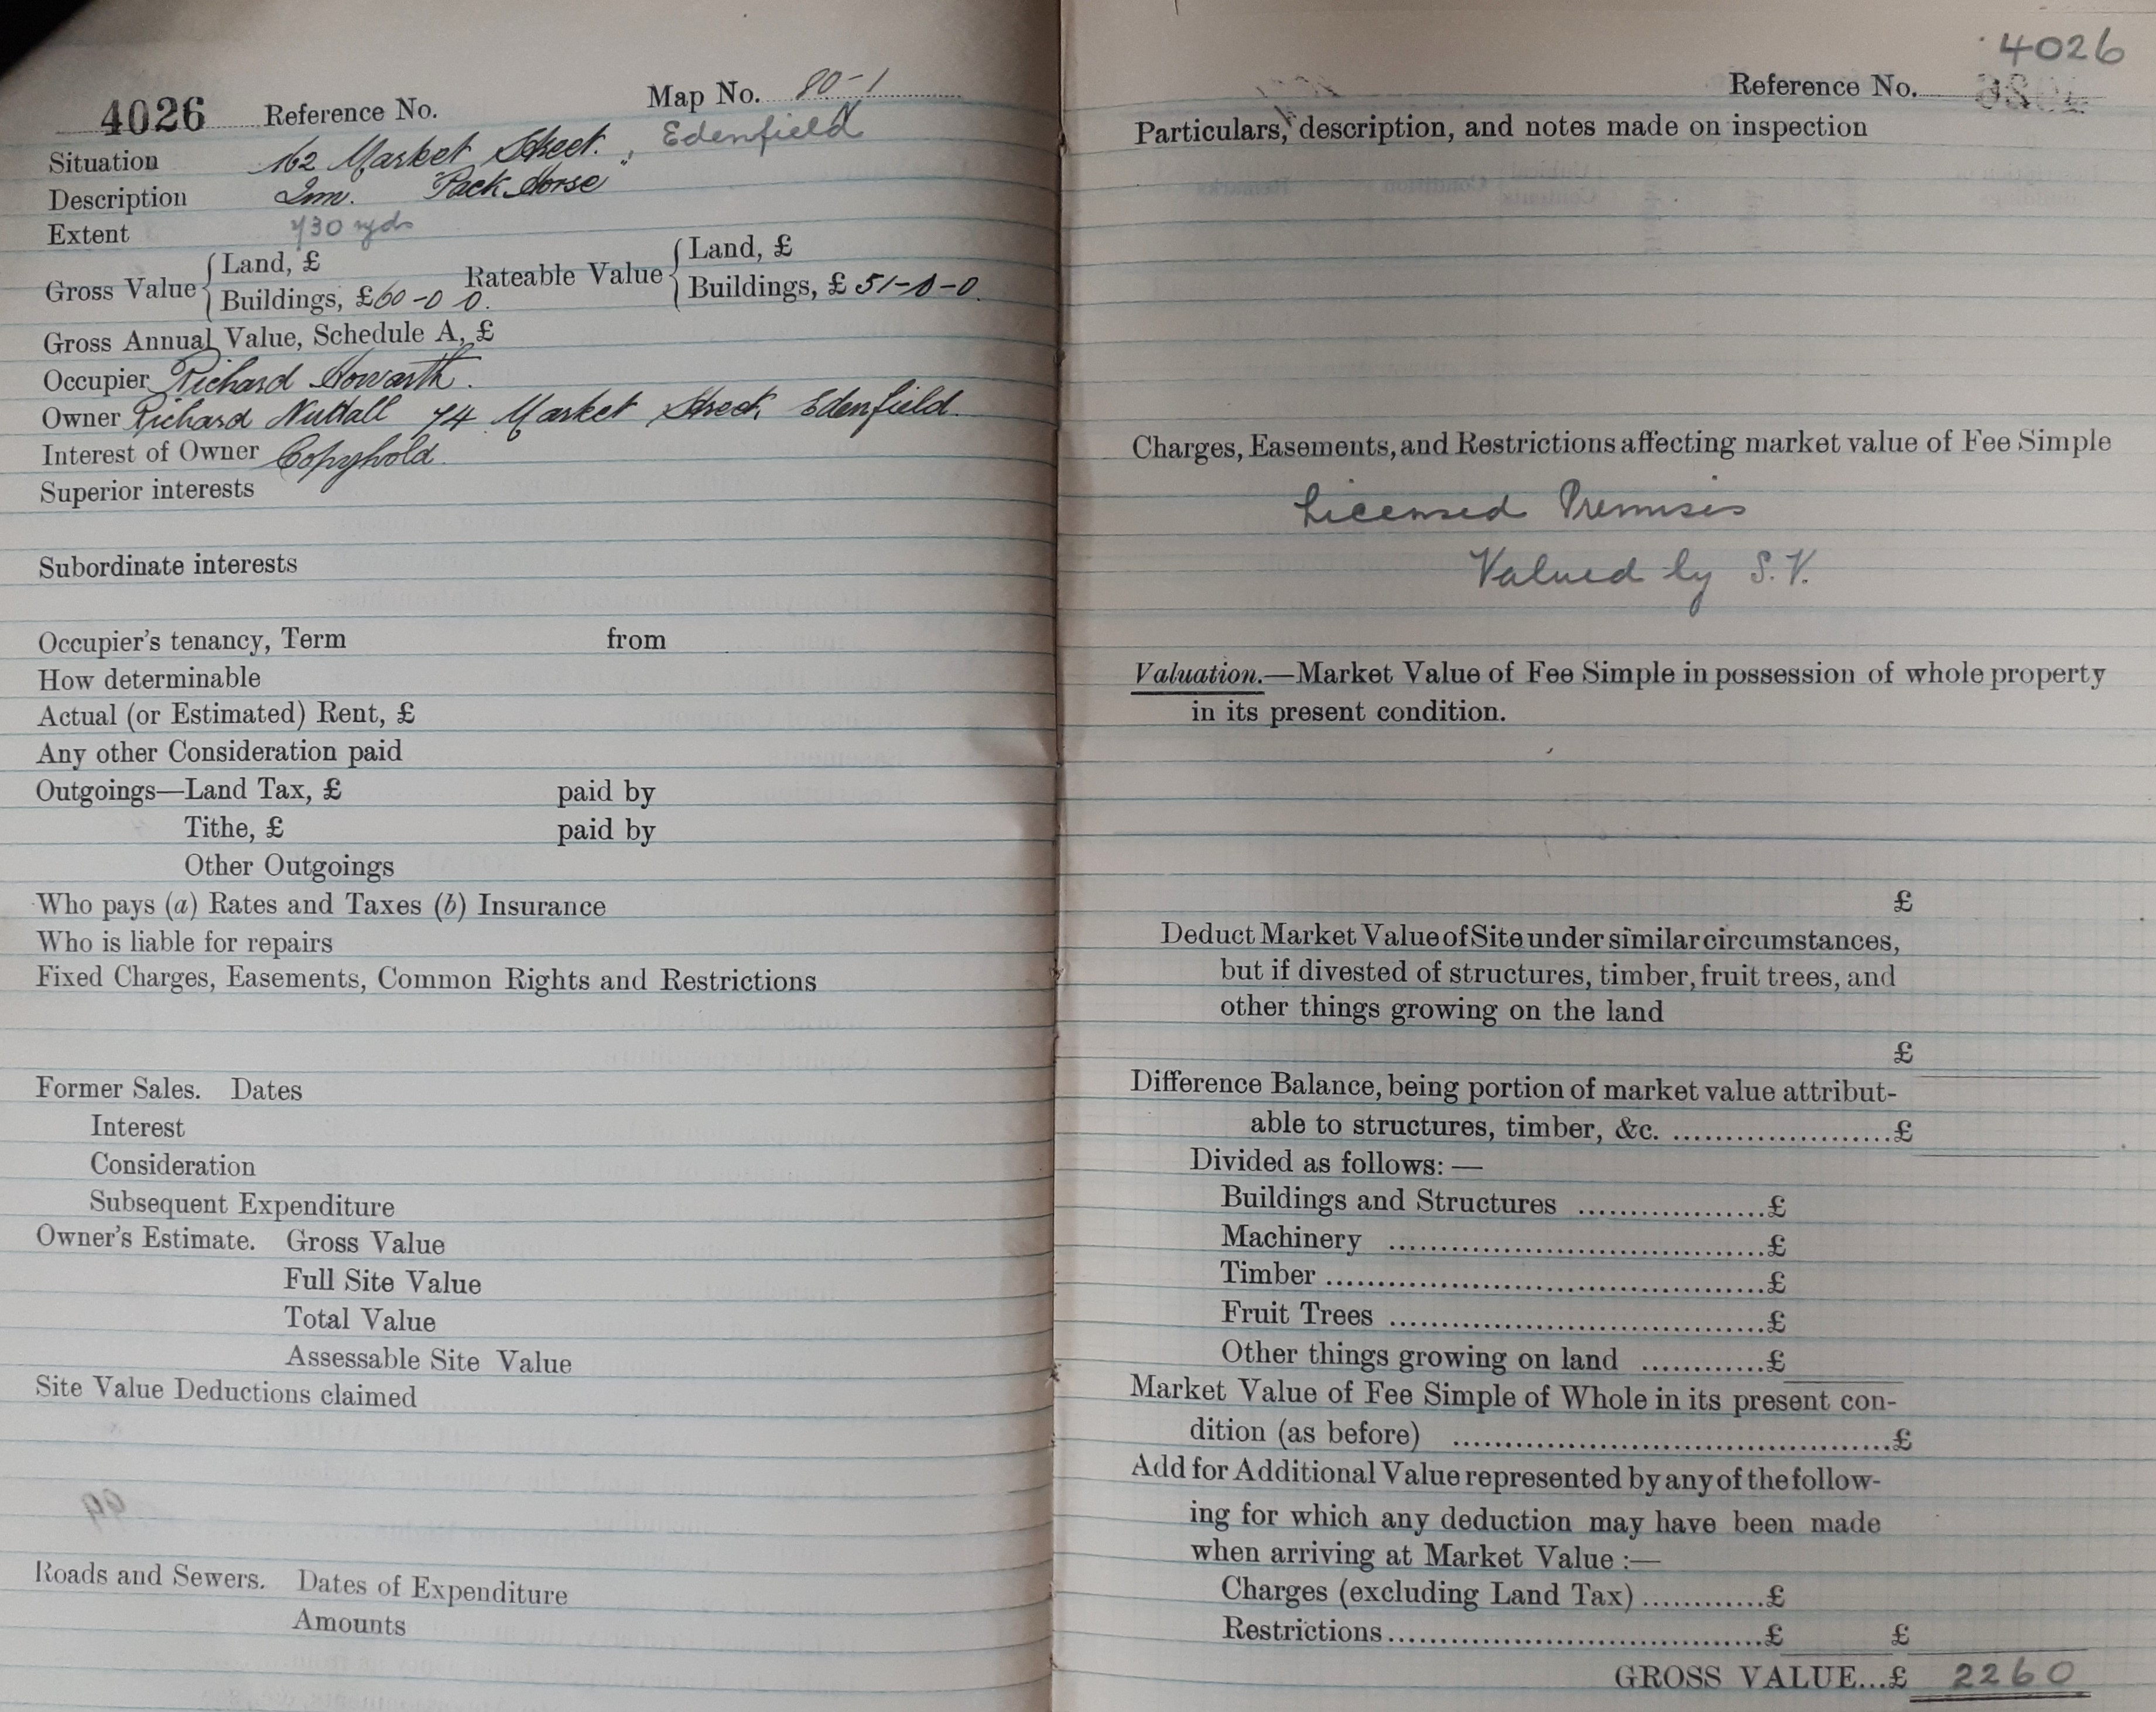 4026 Reference No. Map No. 80-1
Situation 162 Market Street, Edenfield
Description Inn. "Pack Horse"
Extent 730 yds
Gross Value { Land, £ Rateable Value { Land, £
Buildings, £60-0 0. Buildings, £ 51-0-0.
Gross Annual Value, Schedule A, £
Occupier Richard Howarth.
Owner Richard Nuttall 74 Market Street Edenfield.
Interest of Owner Copyhold.
Superior interests
Subordinate interests
Occupier's tenancy, Term from
How determinable
Actual (or Estimated) Rent, £
Any other Consideration paid
Outgoings—Land Tax, £ paid by
Tithe, £ paid by
Other Outgoings
Who pays (a) Rates and Taxes (b) Insurance
Who is liable for repairs
Fixed Charges, Easements, Common Rights and Restrictions
Former Sales. Dates
Interest
Consideration
Subsequent Expenditure
Owner's Estimate. Gross Value
Full Site Value
Total Value
Assessable Site Value
Site Value Deductions claimed
Roads and Sewers. Dates of Expenditure
Amounts
4026
Reference No.
Particulars, description, and notes made on inspection
Charges, Easements, and Restrictions affecting market value of Fee Simple
Licensed Premises
Valued by S.V.
Valuation.—Market Value of Fee Simple in possession of whole property
in its present condition.
£
Deduct Market Value of Site under similar circumstances,
but if divested of structures, timber, fruit trees, and
other things growing on the land
£
Difference Balance, being portion of market value attribut-
able to structures, timber, &c. .....................£
Divided as follows:—
Buildings and Structures ..................£
Machinery ....................................£
Timber ..........................................£
Fruit Trees ....................................£
Other things growing on land ............£
Market Value of Fee Simple of Whole in its present con-
dition (as before) ..........................................£
Add for Additional Value represented by any of the follow-
ing for which any deduction may have been made
when arriving at Market Value :—
Charges (excluding Land Tax) ............£
Restrictions....................................£ £
GROSS VALUE...£ 2260